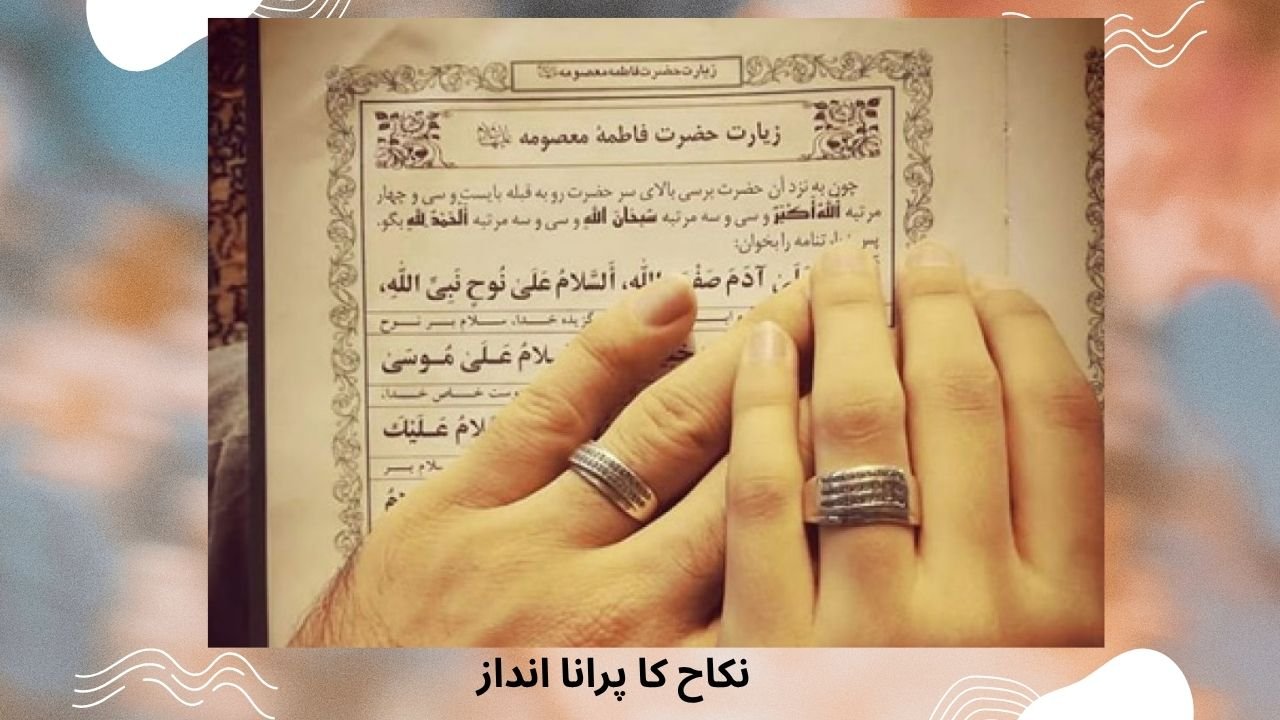 زیارت حضرت فاطمه معصومه
زیارت حضرت فاطمهٔ معصومه
چون به نزد آن حضرت برسی بالای سر حضرت رو به قبله بایست و سی و چهار
مرتبه اَللّٰهُ اَکْبَرُ و سی و سه مرتبه سُبْحَانَ اللّٰهِ و سی و سه مرتبه اَلْحَمْدُ لِلّٰهِ بگو.
پس را بخوان:
آدَمَ اللهِ، أَلسَّلامُ عَلىٰ نُوحٍ نَبِىِّ اللَّهِ،
خدا، سلام بر نوح
عَلىٰ مُوسَىٰ
خاص خدا،
عَلَيْكَ
بر
نکاح کا پرانا انداز